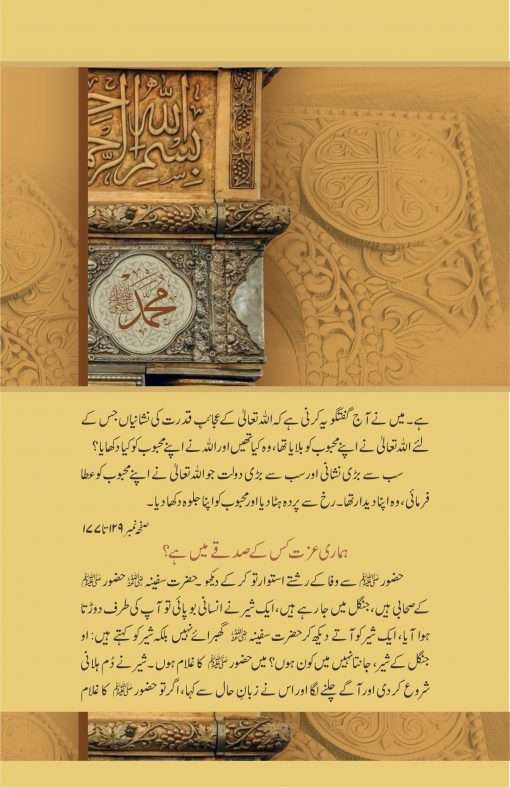 بسم الله الرحم
محمد
ہے۔ میں نے آج گفتگو یہ کرنی ہے کہ اللہ تعالیٰ کے عجائب قدرت کی نشانیاں جس کے
لئے اللہ تعالیٰ نے اپنے محبوب کو بلایا تھا، وہ کیا تھیں اور اللہ نے اپنے محبوب کو کیا دکھایا؟
سب سے بڑی نشانی اور سب سے بڑی دولت جو اللہ تعالیٰ نے اپنے محبوب کو عطا
فرمائی، وہ اپنا دیدار تھا۔ رخ سے پردہ ہٹا دیا اور محبوب کو اپنا جلوہ دکھا دیا۔
صفحہ نمبر ۱۲۹ تا ۱۷۷
ہماری عزت کس کے صدقے میں ہے؟
حضور ﷺ سے وفا کے رشتے استوار تو کر کے دیکھو۔ حضرت سفینہ رضی اللہ عنہ حضور ﷺ
کے صحابی ہیں، جنگل میں جا رہے ہیں، ایک شیر نے انسانی بو پائی تو آپ کی طرف دوڑتا
ہوا آیا، ایک شیر کو آتے دیکھ کر حضرت سفینہ رضی اللہ عنہ گھبرائے نہیں بلکہ شیر کو کہتے ہیں: او
جنگل کے شیر، جانتا نہیں میں کون ہوں؟ میں حضور ﷺ کا غلام ہوں۔ شیر نے دُم ہلانی
شروع کر دی اور آگے چلنے لگا اور اس نے زبانِ حال سے کہا، اگر تو حضور ﷺ کا غلام